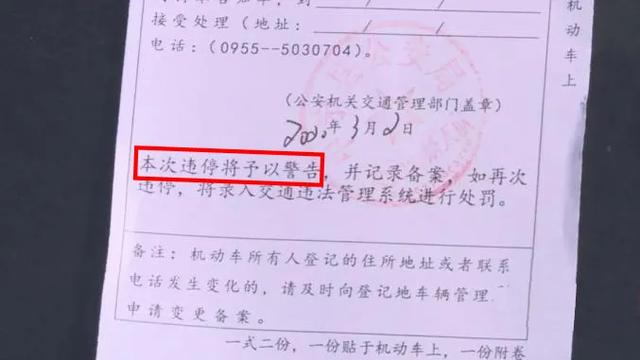 接受处理（地址：　/　/　/
电话：（0955--5030704）
（公安机关交通管理部门盖章）
2020年3月2日
本次违停将予以警告，并记录备案，如再次
违停，将录入交通违法管理系统进行处罚。
备注：机动车所有人登记的住所地址或者联系
电话发生变化的，请及时向登记地车辆管理
申请变更备案。
一式二份，一份贴于机动车上，一份附卷
机动车上